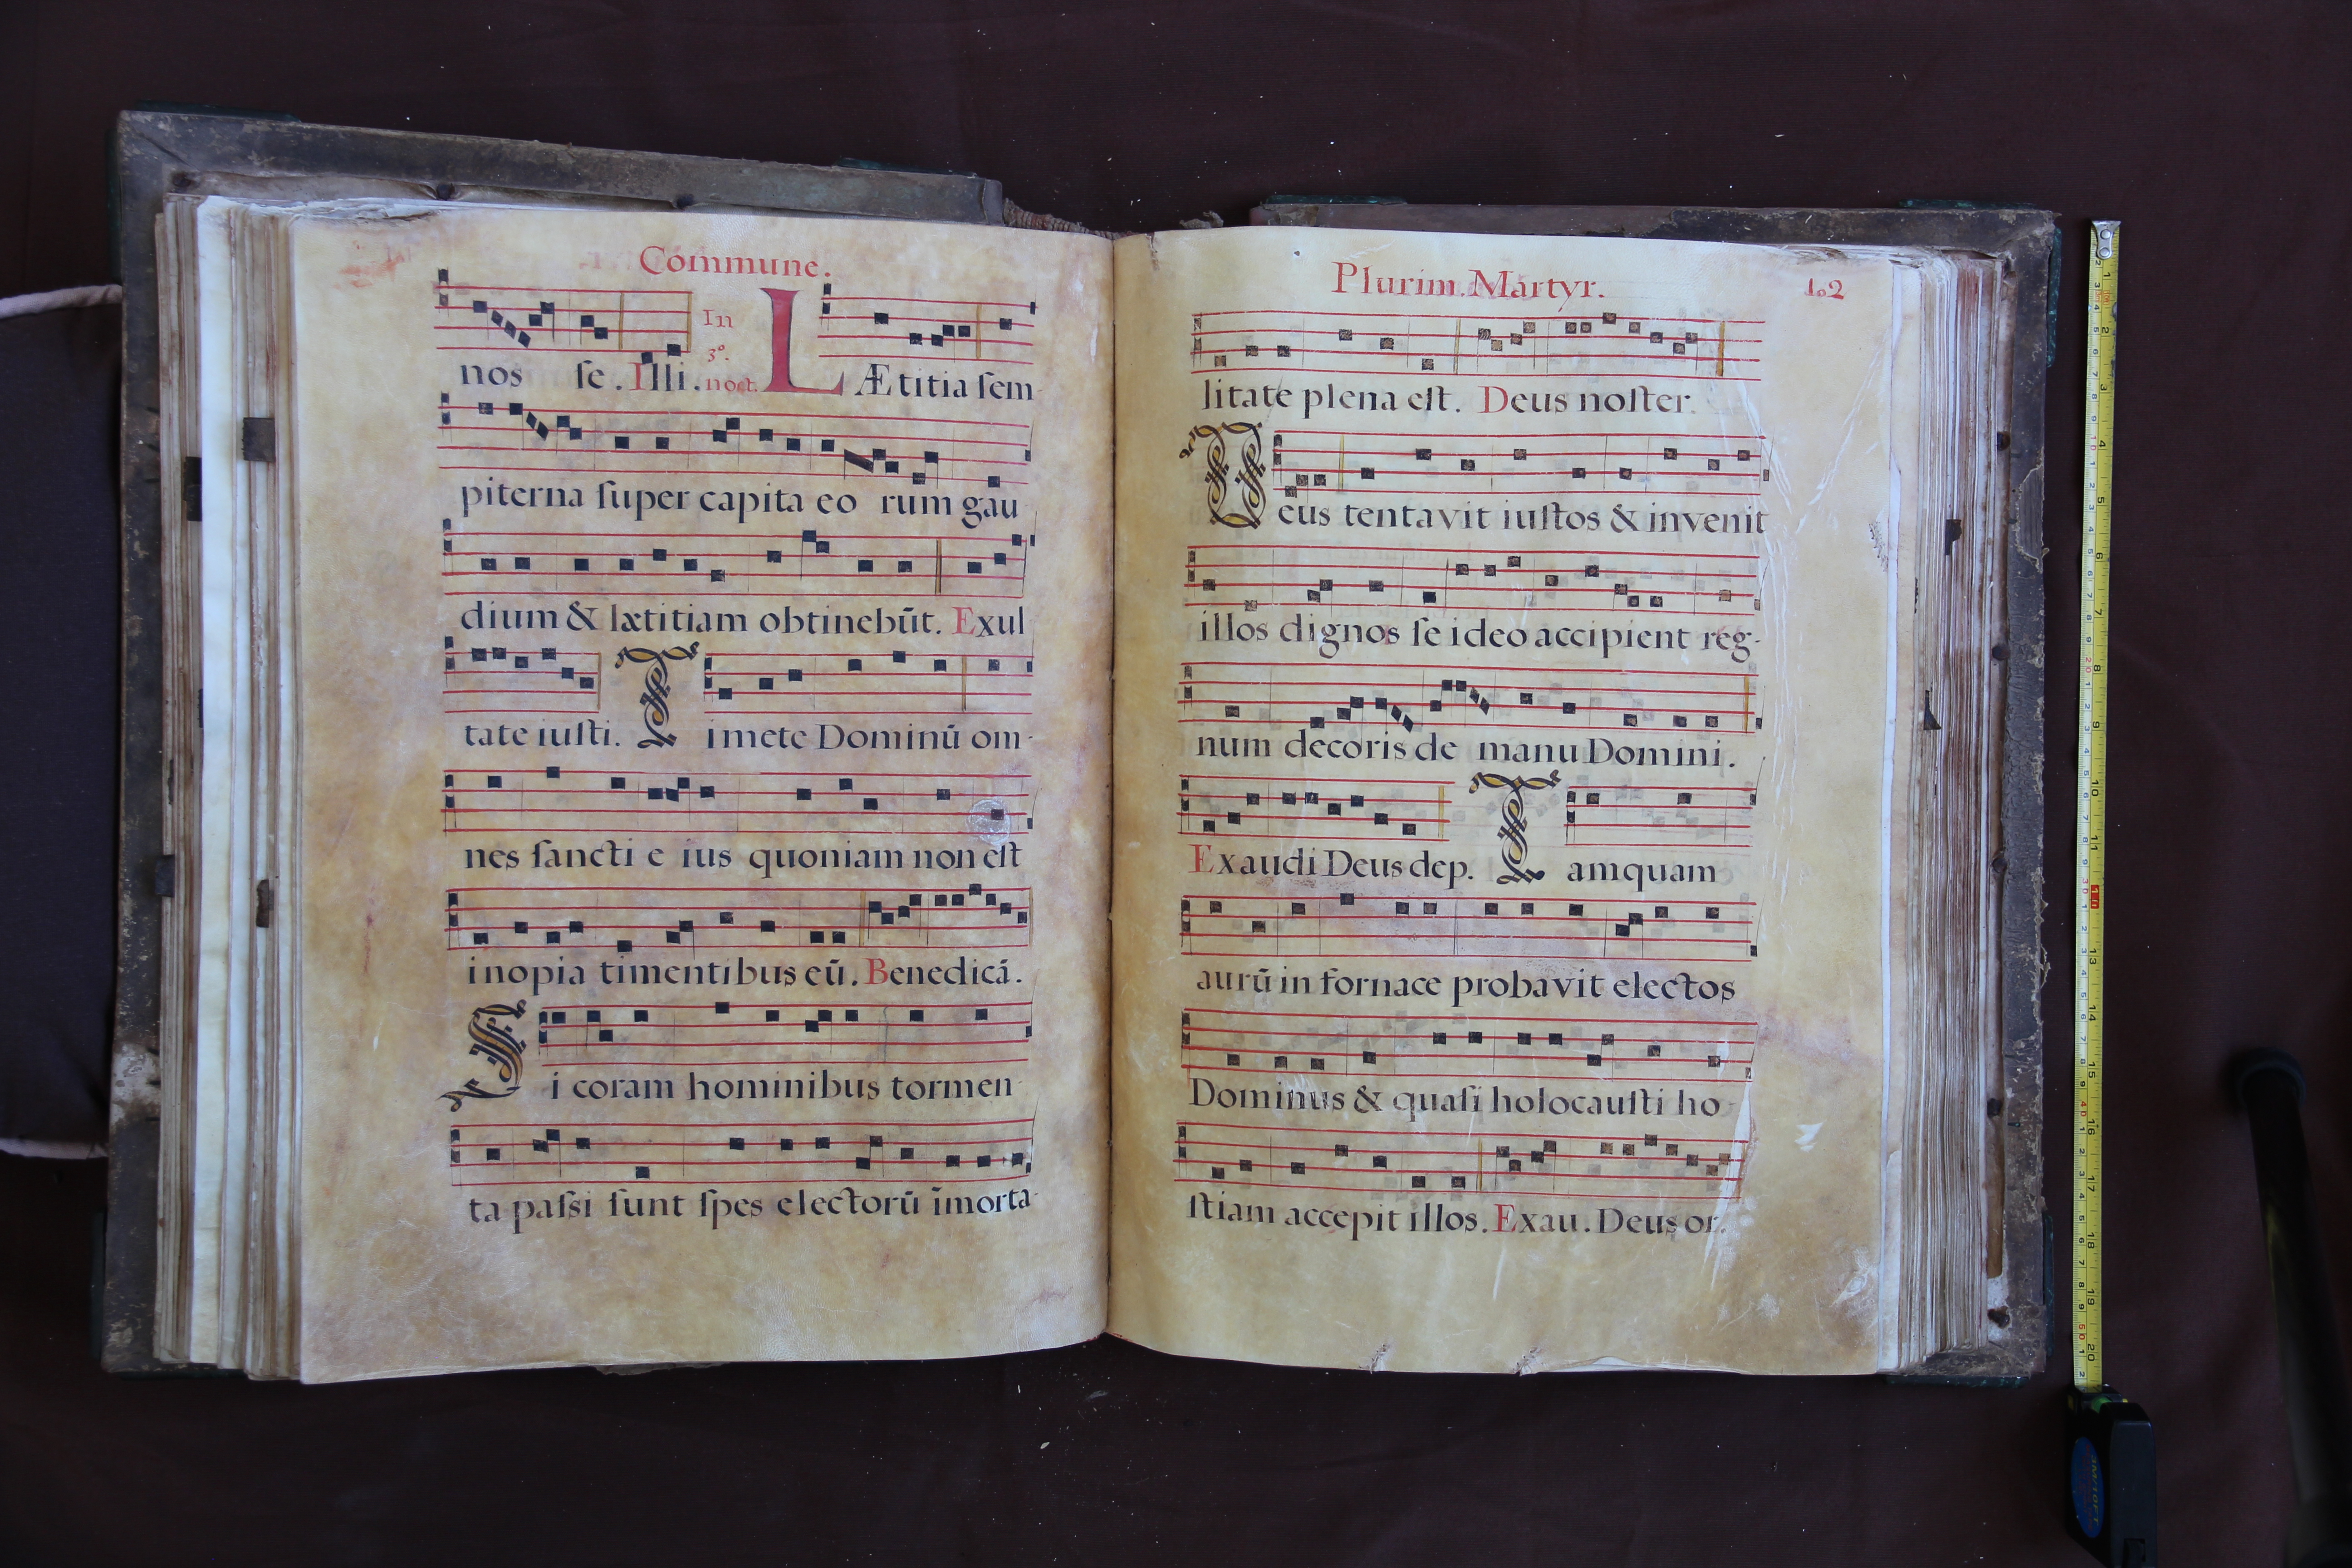 Commune.
nos se. Illi. In 3º. noct. LÆtitia sem
piterna super capita eo rum gau
dium & lætitiam obtinebūt. Exul
tate iusti. Timete Dominū om-
nes sancti e ius quoniam non est
inopia timentibus eū. Benedicā.
Si coram hominibus tormen
ta passi sunt spes electorū īmorta-
Plurim. Martyr. 102
litate plena est. Deus noster.
Deus tentavit iustos & invenit
illos dignos se ideo accipient reg-
num decoris de manu Domini.
Exaudi Deus dep. Tamquam
aurū in fornace probavit electos
Dominus & quasi holocausti ho-
stiam accepit illos. Exau. Deus or.